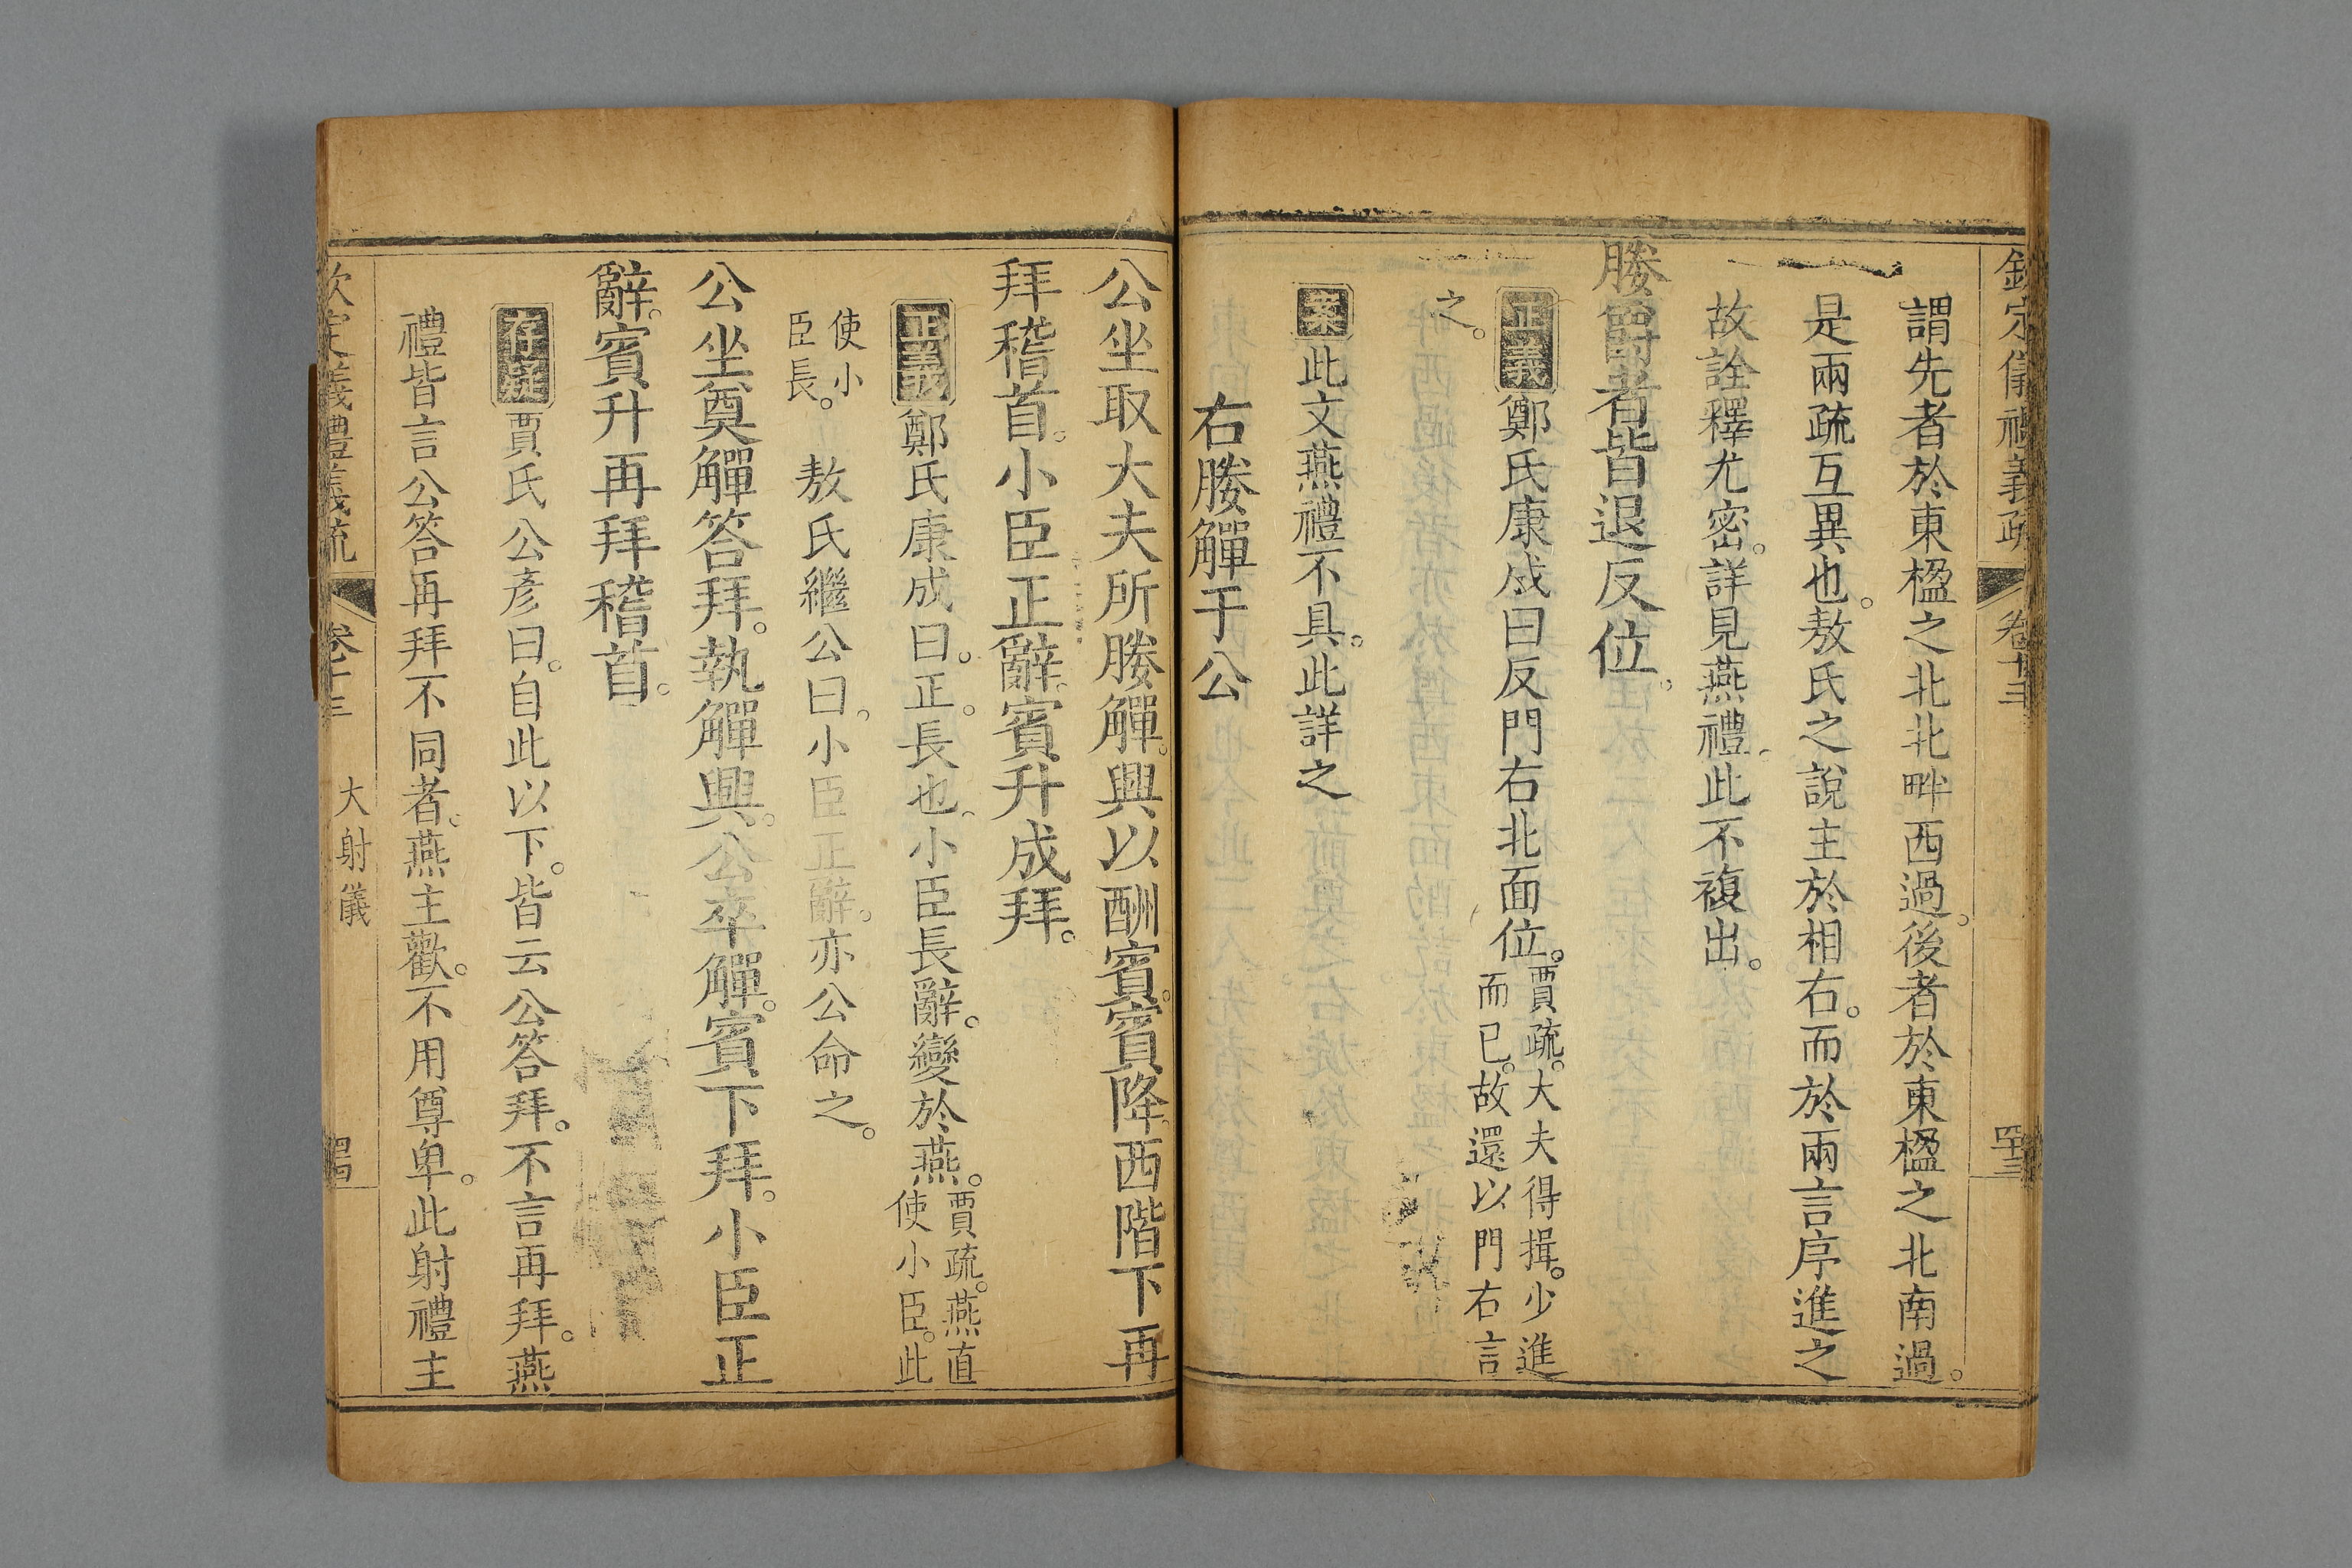 欽定儀禮義疏 卷十三 四十三
謂先者於東楹之北北畔西過。後者於東楹之北南過。
是兩疏互異也。敖氏之說主於相右。而於兩言序進之
故詮釋尤密。詳見燕禮。此不複出。
媵爵者皆退反位。
正義鄭氏康成曰反門右北面位。賈疏。大夫得揖。少進
而已。故還以門右言
之。
案此文燕禮不具。此詳之
右媵觶于公
公坐取大夫所媵觶。興以酬賓。賓降。西階下再
拜稽首。小臣正辭。賓升成拜。
正義鄭氏康成曰。正。長也。小臣長辭。變於燕。賈疏。燕直
使小臣。此
使小
臣長。
敖氏繼公曰。小臣正辭。亦公命之。
公坐奠觶答拜。執觶興。公卒觶。賓下拜。小臣正
辭。賓升再拜稽首。
存疑賈氏公彥曰。自此以下。皆云公答拜。不言再拜。燕
禮皆言公答再拜不同者。燕主歡。不用尊卑。此射禮主
欽定儀禮義疏 卷十三 大射儀 四十四